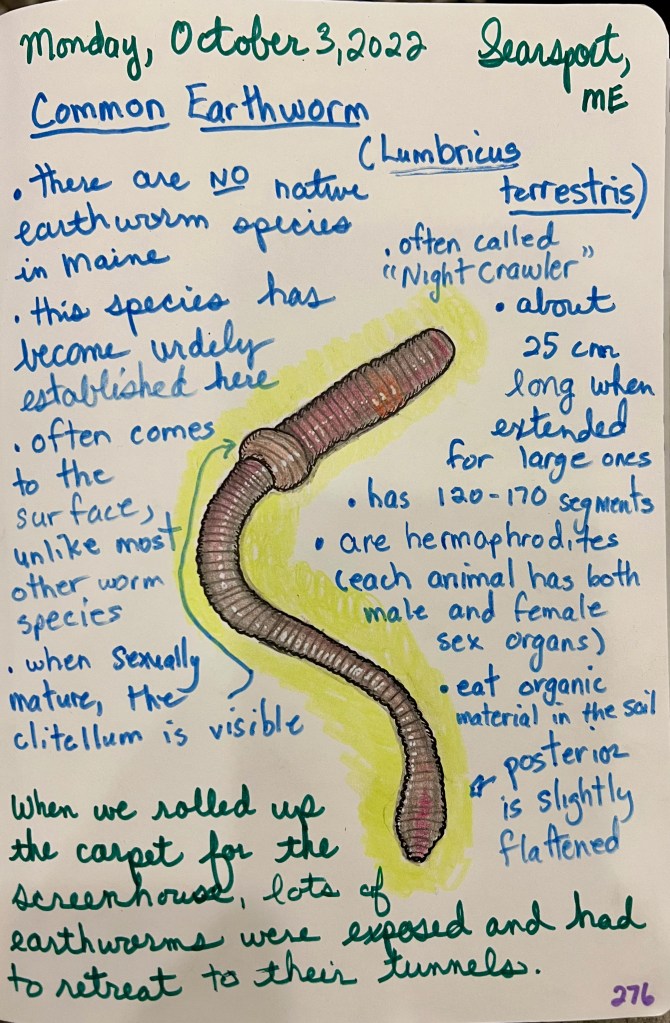 Monday, October 3, 2022
Searsport,
ME
Common Earthworm
(Lumbricus
terrestris)
• there are NO native
earthworm species
in Maine
• this species has
become widely
established here
• often comes
to the
surface,
unlike most
other worm
species
• when sexually
mature, the
clitellum is visible
• often called
"Night Crawler"
• about
25 cm
long when
extended
for large ones
• has 120-170 segments
• are hermaphrodites
(each animal has both
male and female
sex organs)
• eat organic
material in the soil
posterior
is slightly
flattened
When we rolled up
the carpet for the
screenhouse, lots of
earthworms were exposed and had
to retreat to their tunnels.
276